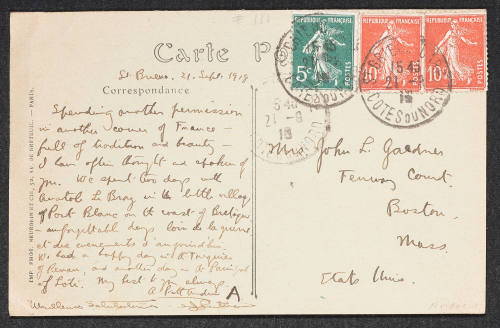 # 111
Carte P
St Brieuc. 21. Sept. 1918
Correspondance
Spending another permission
in another corner of France -
full of tradition and beauty -
I have often thought and spoken of
you. We spent two days with
Anatole Le Braz in the little village
of Port Blanc on the coast of Bretagne
unforgettable days loin de la guerre
et des évènements d'aujourd'hui.
We had a happy day in the Tréguier
of Renan, and another day in the Paimpol
of Loti. My best to you always
A. Piatt Andrew
A
IMP. PHOT. NEURDEIN ET CIE, 52, AV. DE BRETEUIL. - PARIS.
REPUBLIQUE FRANÇAISE
5c
POSTES
REPUBLIQUE FRANÇAISE
10c
POSTES
REPUBLIQUE FRANÇAISE
10c
POSTES
15 45
21 - 9
18
COTES DU NORD
Mrs. John L. Gardner
Fenway Court.
Boston.
Mass.
Etats Unis.